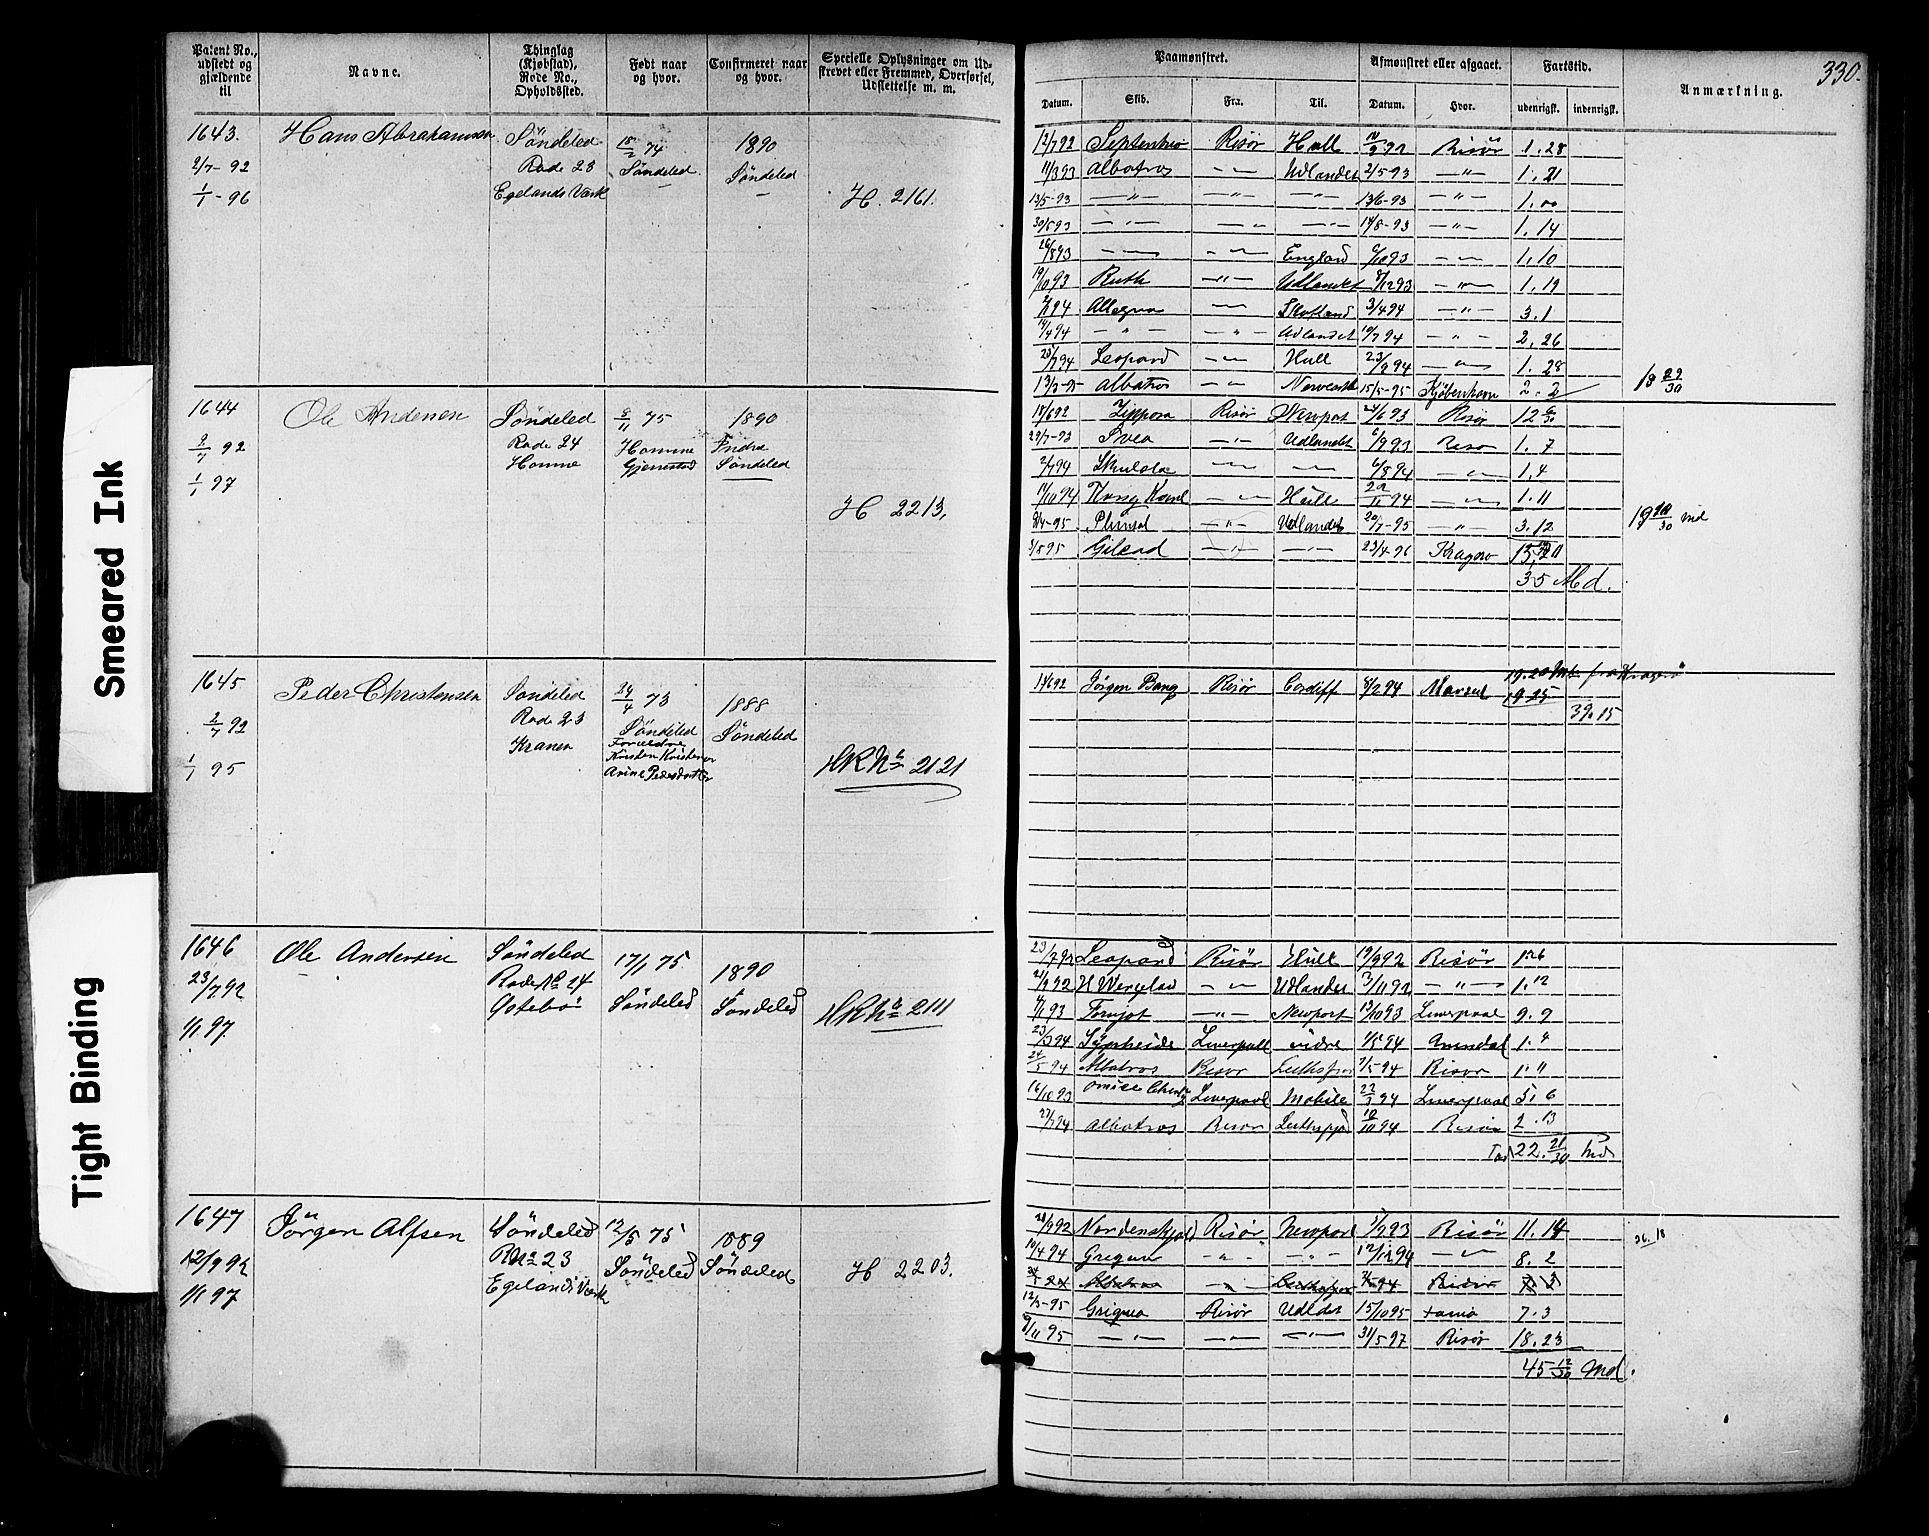 Smeared Ink
Tight Binding
330.
Patent No., udstedt og gjældende til
Navne.
Thinglag (Kjøbstad), Rode No., Opholdssted.
Født naar og hvor.
Confirmeret naar og hvor.
Specielle Oplysninger om Udskrevet eller Fremmed, Overførsel, Udslettelse m. m.
Paamønstret.
Afmønstret eller afgaaet.
Fartstid.
Anmærkning.
Datum. Skib. Fra. Til. Datum. Hvor. udenrigsk. indenrigsk.
1643. Hans Abrahamsen Söndeled 15/2 74 1890
2/7 - 92 Rode 23 Söndeled Söndeled
1/1 - 96 Egelands Værk H. 2161.
12/7 92 September Risör Hull 92 Risör 1. 28
11/3 93 Albatros - " - Udlandet 2/5 93 - " - 1. 21
13/5 - 93 - " - - " - - " - 13/6 - 93 - " - 1. 00
30/6 93 - " - - " - - " - 14/8 - 93 - " - 1. 14
26/8 93 - " - - " - England 6/10 93 - " - 1. 10
19/10 93 Ruth - " - Udlandet 8/12 93 - " - 1. 19
2/1 94 Allegua - " - Skotland 3/4 94 - " - 3. 1
14/4 94 - " - - " - Udlandet 10/7 94 - " - 2. 26
25/7 94 Leopard - " - Hull 23/9 94 - " - 1. 28
13/3 - 95 Albatros - " - 15/5 - 95 Kjöbenhavn 2. 2
18 29/30
1644 Ole Andersen Söndeled 8/11 75 1890
2/7 92 Rode 24 Homme Indre
1/1 97 Homme Gjerrestad Söndeled
H 2213.
18/6 92 Zippora Risör Newport 24/6 93 Risör 12 6/30
29/7 - 93 Svea - " - Udlandet 6/9 93 Risør 1. 7
2/7 94 Skulda - " - - " - 6/8 94 - " - 1. 4
17/10 94 - " - Hull 94 - " - 1. 11
8/4 - 95 - " - Udlandet 20/7 - 95 - " - 3. 12
1/8 95 Gilead - " - - " - 23/4 96 Kragerø
35 Md.
Md
1645 Peder Christensen Söndeled 24/4 73 1888
2/7 92 Rode 23 Söndeled Söndeled
1/1 95 Kranen Forældre
Kristen Kristensen
Arine Pedersdatter
HR No 2121
14/6 92 Jörgen Bang Risör Cardiff 8/2 94
19. 20 fra Kragerö
19 25
39. 15
1646 Ole Andersen Söndeled 17/1 75 1890
23/7 92 Rode No 24 Söndeled Söndeled
1/1 97. HR No 2111
23/7 92 Leopard Risör Hull 19/9 92 Risör 1. 26
21/9 92 H Wergeland - " - Udlandet 3/11 92 - " - 1. 12
4/1 93 Fornjot - " - Newport 13/10 93 Liverpool 9. 9
23/3 94 Liverpool 1/5 94 Arendal 1. "
24/5 94 Albatros Risör 94 Risør 1. 11
16/10 93 Liverpool Mobile 22/3 94 Liverpool 5. 6
27/7 94 Albatros Risør 10/11 94 Risör 2. 13
22. 21/30 Md
1647 Jörgen Alfsen Söndeled 12/5 75 1889
12/9 92 Rd No 23 Söndeled Söndeled
1/1 97 Egelands Værk H 2203.
20/9 92 Nordenskjold Risör Newport 7/9 93 Risör 11. 14
10/4 94 Gregua - " - - " - 12/12 94 - " - 8. 2
Albatros - " - 94 Risör
12/3 - 95 Griqua Risör Udldet 15/10 95 7. 3
9/11 95 - " - - " - - " - 31/5 - 97 Risör 18. 23
45 12/30 Md.
26. 18